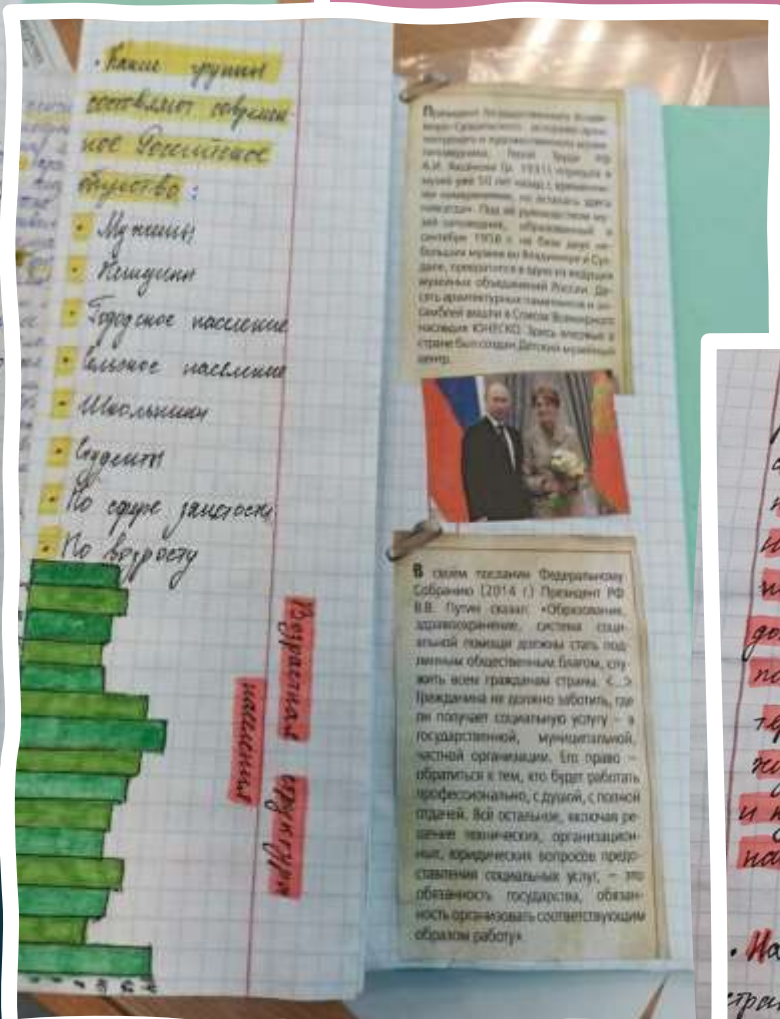 • Какие группы
составляют современ
ное Российское
общество :
• Мужчины
• Женщины
• Городское население
• Сельское население
• Школьники
• Студенты
• По сфере занятости
• По возросту
Возрастная структура
населения
Президент Государственного Владимиро-Суздальского историко-архитектурного и художественного музея-заповедника, Герой Труда РФ
А.И. Аксёнова (р. 1931) пришла в
музей уже 50 лет назад с временными намерениями, но осталась здесь
навсегда. Под её руководством музей-заповедник, образованный в
сентябре 1958 г. на базе двух небольших музеев во Владимире и Суздале, превратился в одно из ведущих
музейных объединений России. Десять архитектурных памятников и ансамблей вошли в Список Всемирного
наследия ЮНЕСКО. Здесь впервые в
стране был создан Детский музейный
центр.
В своём послании Федеральному
Собранию (2014 г.) Президент РФ
В.В. Путин сказал: «Образование,
здравоохранение, система соци-
альной помощи должны стать под-
линным общественным благом, слу-
жить всем гражданам страны. <...>
Гражданина не должно заботить, где
он получает социальную услугу – в
государственной, муниципальной,
частной организации. Его право –
обратиться к тем, кто будет работать
профессионально, с душой, с полной
отдачей. Всё остальное, включая ре-
шение технических, организацион-
ных, юридических вопросов предо-
ставления социальных услуг, – это
обязанность государства, обязан-
ность организовать соответствующим
образом работу»